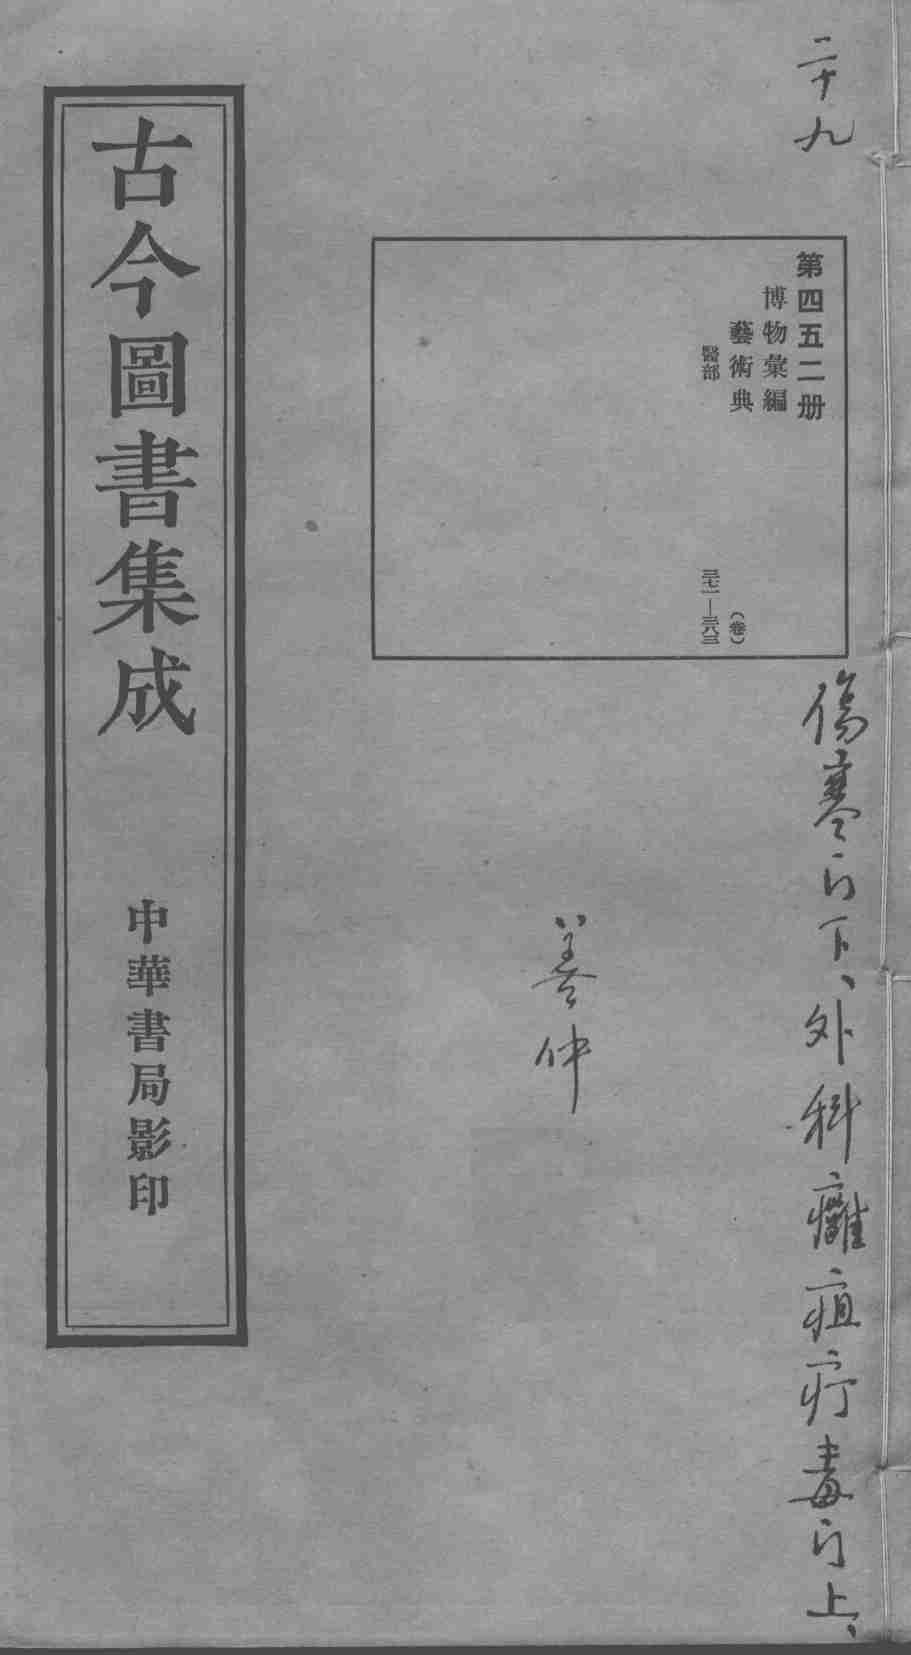 二十九
傷寒门下、外科癰疽疔毒门上、
第四五二册
博物彙編
藝術典
(卷)
醫部
三七一—三八三
善仲
古今圖書集成
中華書局影印